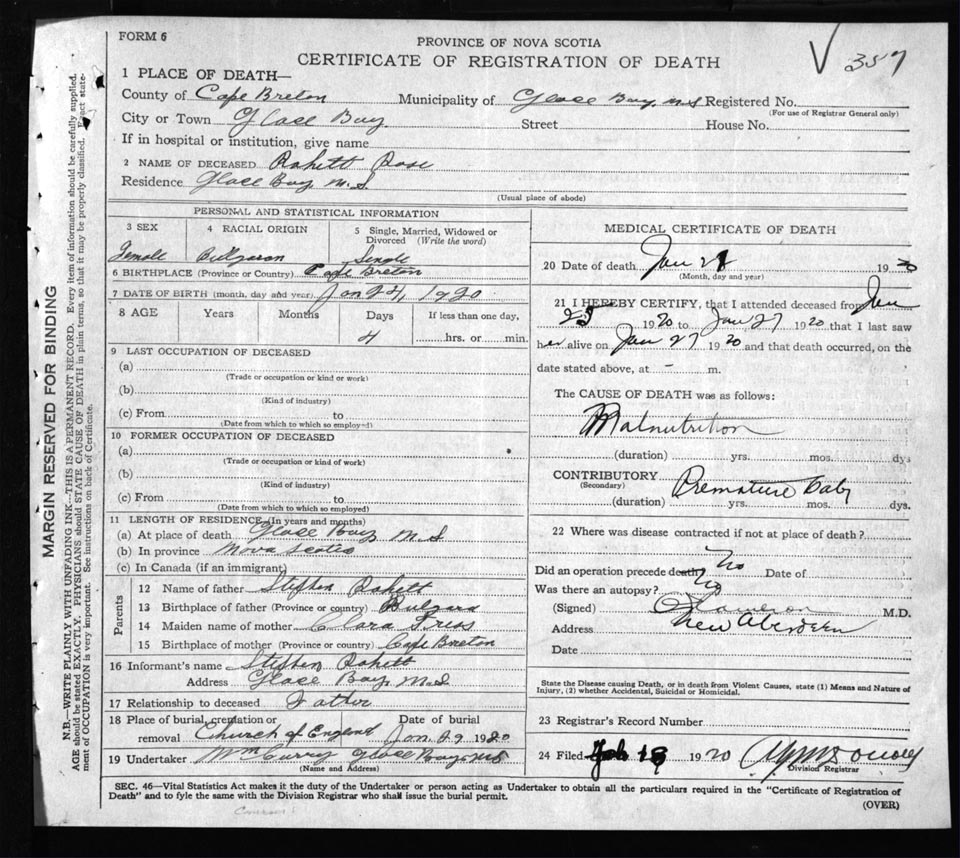 FORM 6
PROVINCE OF NOVA SCOTIA
CERTIFICATE OF REGISTRATION OF DEATH
V 357
1 PLACE OF DEATH—
County of Cape Breton Municipality of Glace Bay, N.S Registered No.
(For use of Registrar General only)
City or Town Glace Bay Street House No.
If in hospital or institution, give name
2 NAME OF DECEASED Rose
Residence Glace Bay N.S
(Usual place of abode)
PERSONAL AND STATISTICAL INFORMATION
3 SEX 4 RACIAL ORIGIN 5 Single, Married, Widowed or Divorced (Write the word)
Female Single
6 BIRTHPLACE (Province or Country) Cape Breton
7 DATE OF BIRTH (month, day and year) Jan 24, 1920
8 AGE Years Months Days If less than one day,
4 hrs. or min.
9 LAST OCCUPATION OF DECEASED
(a)
(Trade or occupation or kind or work)
(b)
(Kind of industry)
(c) From to
(Date from which to which so employed)
10 FORMER OCCUPATION OF DECEASED
(a)
(Trade or occupation or kind of work)
(b)
(Kind of industry)
(c) From to
(Date from which to which so employed)
11 LENGTH OF RESIDENCE (In years and months)
(a) At place of death Glace Bay N.S
(b) In province Nova Scotia
(c) In Canada (if an immigrant)
Parents
12 Name of father Stephen
13 Birthplace of father (Province or country)
14 Maiden name of mother Clara
15 Birthplace of mother (Province or country) Cape Breton
16 Informant's name Stephen
Address Glace Bay, N.S
17 Relationship to deceased Father
18 Place of burial, cremation or removal Church of England Date of burial Jan 29 1920
19 Undertaker Wm Curry Glace Bay N.S
(Name and Address)
MEDICAL CERTIFICATE OF DEATH
20 Date of death Jan 28 1920
(Month, day and year)
21 I HEREBY CERTIFY, that I attended deceased from Jan
25 1920 to Jan 27 1920 that I last saw
her alive on Jan 27 1920 and that death occurred, on the
date stated above, at - m.
The CAUSE OF DEATH was as follows:
Malnutrition
(duration) yrs. mos. dys
CONTRIBUTORY Premature baby
(Secondary)
(duration) yrs. mos. dys.
22 Where was disease contracted if not at place of death?
Did an operation precede death? No Date of
Was there an autopsy? No
(Signed) Cameron M.D.
Address New Aberdeen
Date
State the Disease causing Death, or in death from Violent Causes, state (1) Means and Nature of
Injury, (2) whether Accidental, Suicidal or Homicidal.
23 Registrar's Record Number
24 Filed Feb 18 1920
Division Registrar
SEC. 46—Vital Statistics Act makes it the duty of the Undertaker or person acting as Undertaker to obtain all the particulars required in the "Certificate of Registration of
Death" and to fyle the same with the Division Registrar who shall issue the burial permit.
(OVER)
MARGIN RESERVED FOR BINDING
N.B.—WRITE PLAINLY WITH UNFADING INK—THIS IS A PERMANENT RECORD. Every item of information should be carefully supplied.
AGE should be stated EXACTLY. PHYSICIANS should STATE CAUSE OF DEATH in plain terms, so that it may be properly classified. Exact state-
ment of OCCUPATION is very important. See instructions on back of Certificate.